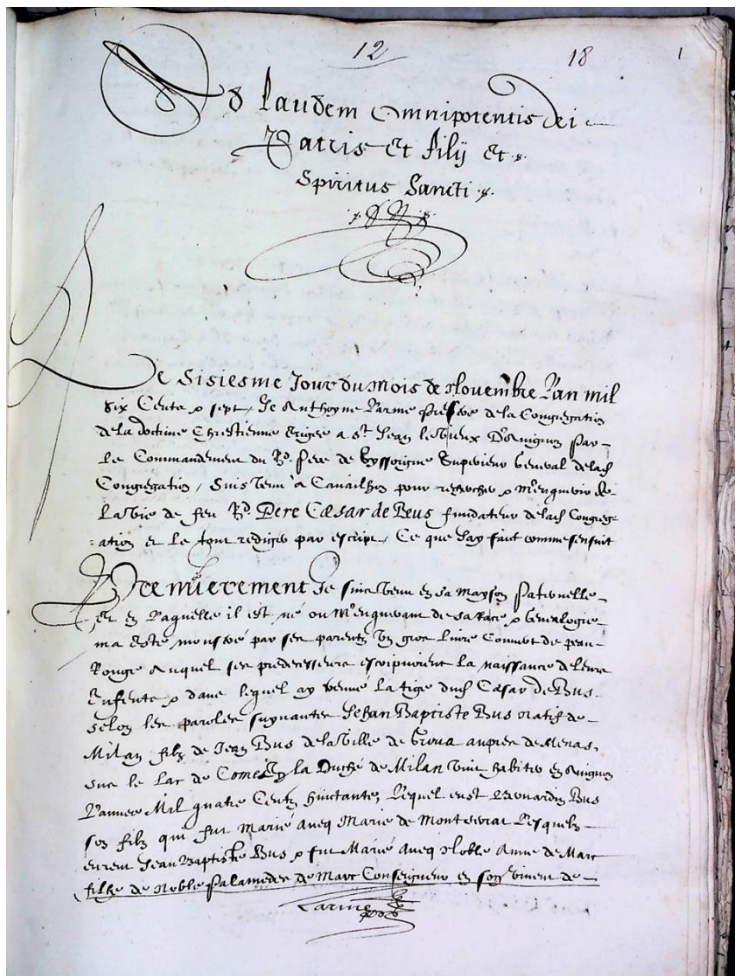 12 18 1
Ad laudem Omnipotentis dei
Patris et filij et
Spiritus Sancti
Le Sisiesme Jour du mois de Novembre L'an mil
six Cents & sept, Je Anthoyne Larme prestre de la Congregation
de la doctrine Chrestienne erigee a St Jean le Vieux D'Avignon par
le Commandement du Rd. Pere de Superieur General de lad
Congregation, suis venu a Cavailhon pour recherche & m'enquerir de
la vie de feu Rd Pere Cæsar de Bus fundateur de lad Congreg-
ation et le tout rediger par escript, Ce que j'ay faict comme sensuit
Premierement Je suis venu en sa mayson paternelle
et en laquelle il est né ou m'enquerant de sa race & Genealogie
m'a esté monstré par ses parents un gros livre Couvert de peau
Rouge auquel ses predecesseurs escripvoient la naissance de leurs
enfents & dans lequel ay treuvé la tige dud Cæsar de Bus
selon les paroles suyvantes Jehan Baptiste Bus natif de
Milan filz de Jean Bus de la Ville de aupres de Menas,
sur le Lac de Come la Duché de Milan vint habiter en Avignon
l'annee Mil quatre Cents huictante, Lequel eust Bernardin Bus
son filz qui fut Marié aveq Marie de Lesquels
eurent Jean Baptiste Bus & fut Marié aveq Noble Anne de Marc
filhe de Noble Palamedes de Marc Conseigneur en son vivent de
Larme